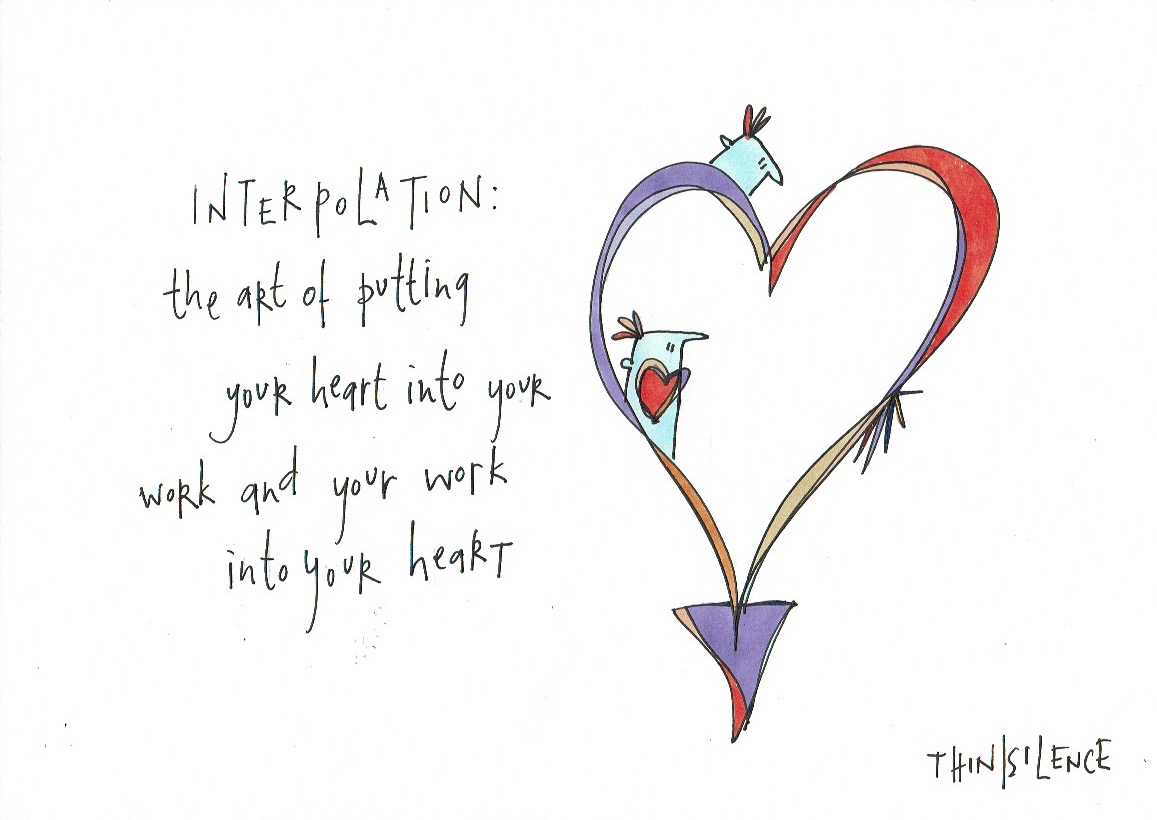 INTERPOLATION:
the art of putting
your heart into your
work and your work
into your heart
THIN|SILENCE